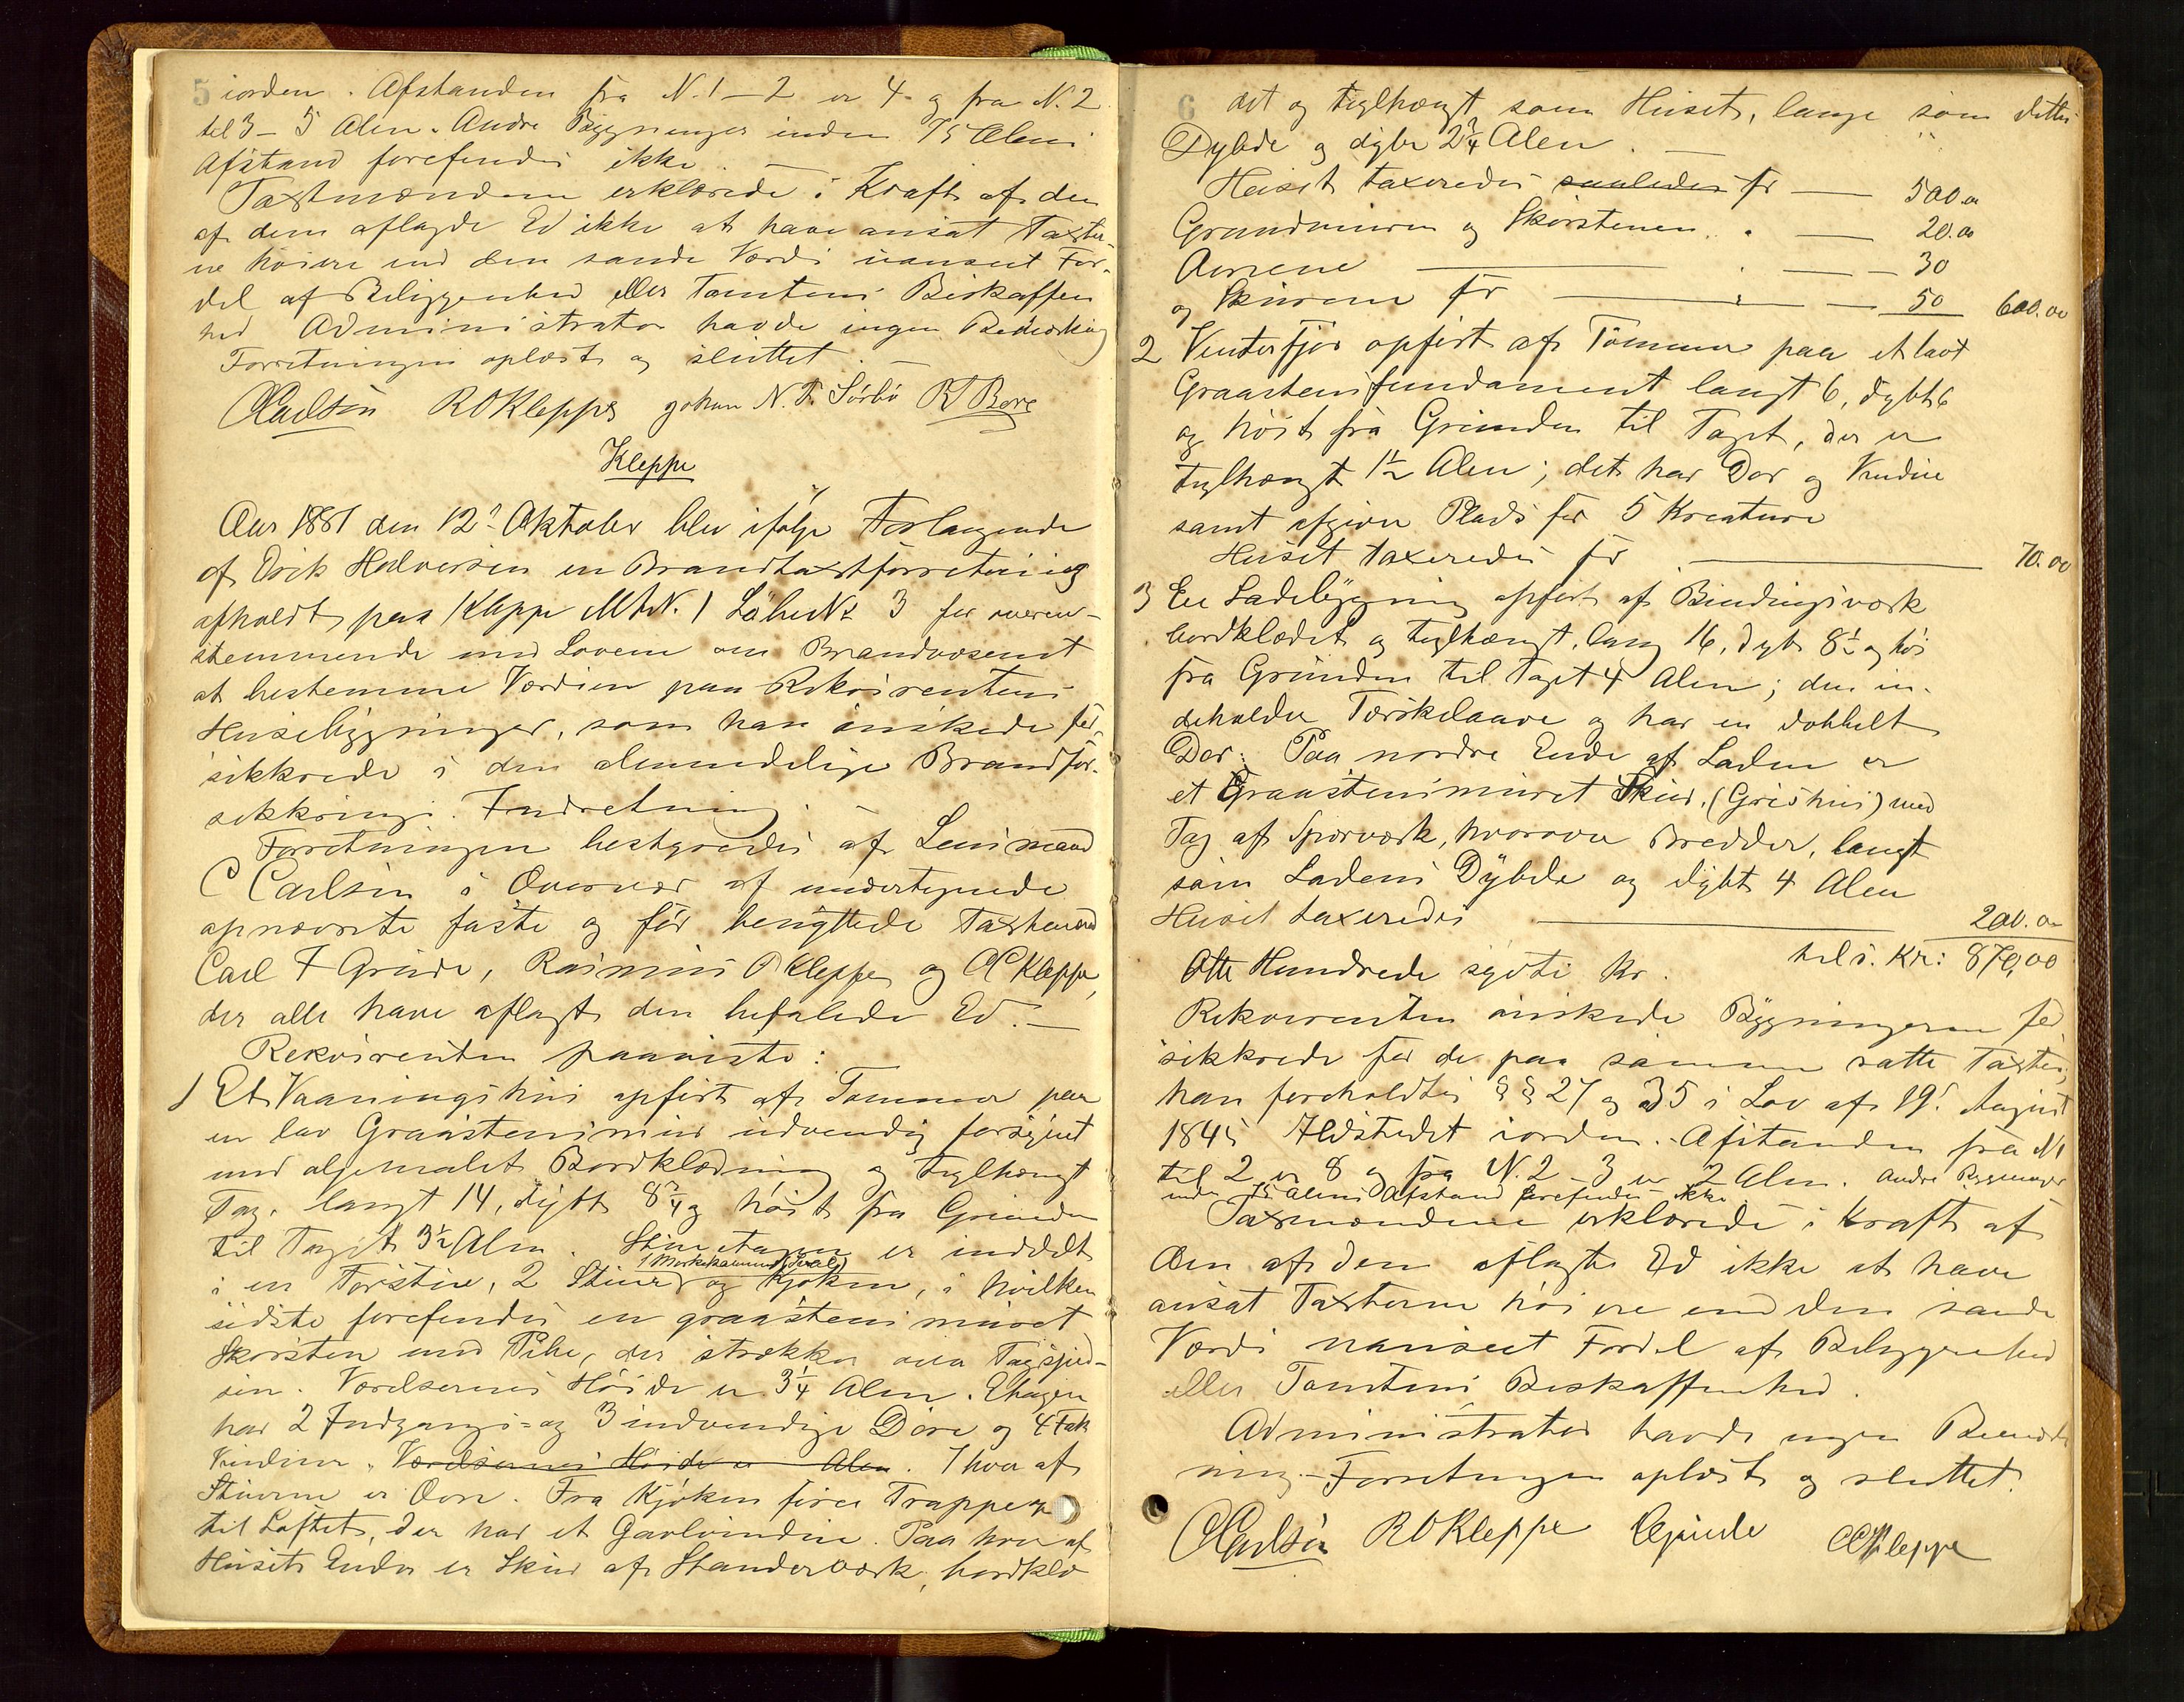 5 iorden. Afstanden fra N. 1 – 2 er 4 og fra N. 2
til 3 – 5 Alen. Andre Bygninger inden 75 Alens
Afstand forefindes ikke. –
Taxtmændene erklærede i Kraft af den
af dem aflagde Ed ikke at have ansat Taxter-
ne høiere end den sande Værdi uanseet For-
del af Beliggenhed eller Tomtens Beskaffen
hed Administrator havde ingen Bemærkning
Forretningen oplæst og sluttet. –
CCarlsen ROKleppe Johan N. T. Sørbø RTBore
Kleppe
Aar 1881 den 12te Oktober blev ifølge Forlangende
af Erik Halversen en Brandtaxtforretning
afholdt paa Kleppe MtrN. 1 LøbeNr 3 for overen-
stemmende med Lovene om Brandvæsenet
at bestemme Værdien paa Rekvirentens
Husebygninger, som han ønskede for-
sikkrede i den almindelige Brandfor-
sikkrings. Indretning. –
Forretningen bestyredes af Lensmand
C Carlsen i Overvær af undertegnede
opnævnte faste og før benyttede Taxtmænd
Carl F Grude, Rasmus O Kleppe og OC Kleppe,
der alle have aflagt den befalede Ed. –
Rekvirenten paaviste:
1 Et Vaaningshus opført af Tømmer paa
en lav Graastensmur udvendig forsynet
med oljemalet Bordklædning og teglhængt
Tag, langt 14, dybt 8 3/4 og høit fra Grunden
til Taget 3 1/2 Alen. Stueetagen er inddelt
i en Forstue, 2 Stuer, 1 Mørkekammer (Sval) og Kjøken, i hvilken
sidste forefindes en graastens muret
Skorsten med Pibe, der strækker over Tagspid-
sen. Værelsernes Høide er 3 1/4 Alen. Etagen
har 2 Indgangs- og 3 indvendige Døre og 4 Fak
Vinduer. Værelsernes Høide er Alen. I hver af
Stuerne er Ovn. Fra Kjøken fører Trappe op
til Loftet, der har et Gavlvindue. Paa hver af
Husets Ender er Skur af Standerværk, bordklæ
6 det og teglhængt som Huset, lange som dettes
Dybde og dybe 2 3/4 Alen. –
Huset taxeredes saaledes for — 500.00
Grundmuren og Skorstenen " — 20.00
Ovnene — " — 30
og Skurene for — " — 50 600.00
2 Vinterfjøs opført af Tømmer paa et lavt
Graastensfundament langt 6, dybt 6
og høit fra Grunden til Taget, der er
teglhængt 1 1/2 Alen; det har Dør og Vindue
samt afgiver Plads for 5 Kreature
Huset taxeredes for — 70.00
3 En Ladebygning opført af Bindingsværk
bordklædet og teglhængt, lang 16, dyb 8 1/2 og høi
fra Grunden til Taget 4 Alen; den in-
deholder Tærskelaave og har en dobbelt
Dør; Paa nordre Ende af Laden er
et Graastensmuret Skur. (Grishus) med
Tag af Sperværk, hvorover Bredder, langt
som Ladens Dybde og dybt 4 Alen
Huset taxeredes — 200.00
tils. Kr: 870,00
Otte Hundrede sytti Kr.
Rekvirenten ønskede Bygningerne for
sikkrede for de paa samme satte Taxter;
han foreholdtes §§ 27 og 35 i Lov af 19de August
1845 Ildstedet iorden. Afstanden fra N 1
til 2 er 8 og fra N. 2 – 3 er 2 Alen. Andre Bygninger
inden 75 Alens Afstand forefindes ikke
Taxmændene erklærede i Kraft af
den af dem aflagte Ed ikke at have
ansat Taxterne høiere end den sande
Værdi uanseet Fordel af Beliggenhed
eller Tomtens Beskaffenhed.
Administrator havde ingen Bemærk
ning. – Forretningen oplæst og sluttet.
CCarlsen ROKleppe CGrude OCKleppe